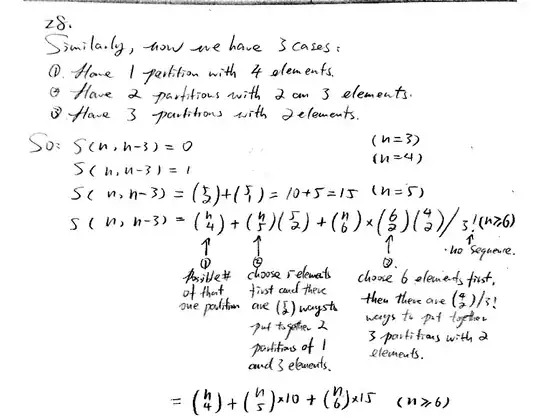 28.
Similarly, now we have 3 cases:
① Have 1 partition with 4 elements.
② Have 2 partitions with 2 an 3 elements.
③ Have 3 partitions with 2 elements.
So: S(n, n-3) = 0 (n=3)
S(n, n-3) = 1 (n=4)
S(n, n-3) = (5 2) + (5 1) = 10+5 = 15 (n=5)
S(n, n-3) = (n 4) + (n 5)(5 2) + (n 6) × (6 2)(4 2) / 3! (n≥6)
no sequence.
①
possible #
of that
one partition
②
choose 5 elements
first and there
are (5 2) ways to
put together 2
partitions of 1
and 3 elements.
③
choose 6 elements first,
then there are (4 2)/3!
ways to put together
3 partitions with 2
elements.
= (n 4) + (n 5)×10 + (n 6)×15 (n≥6)